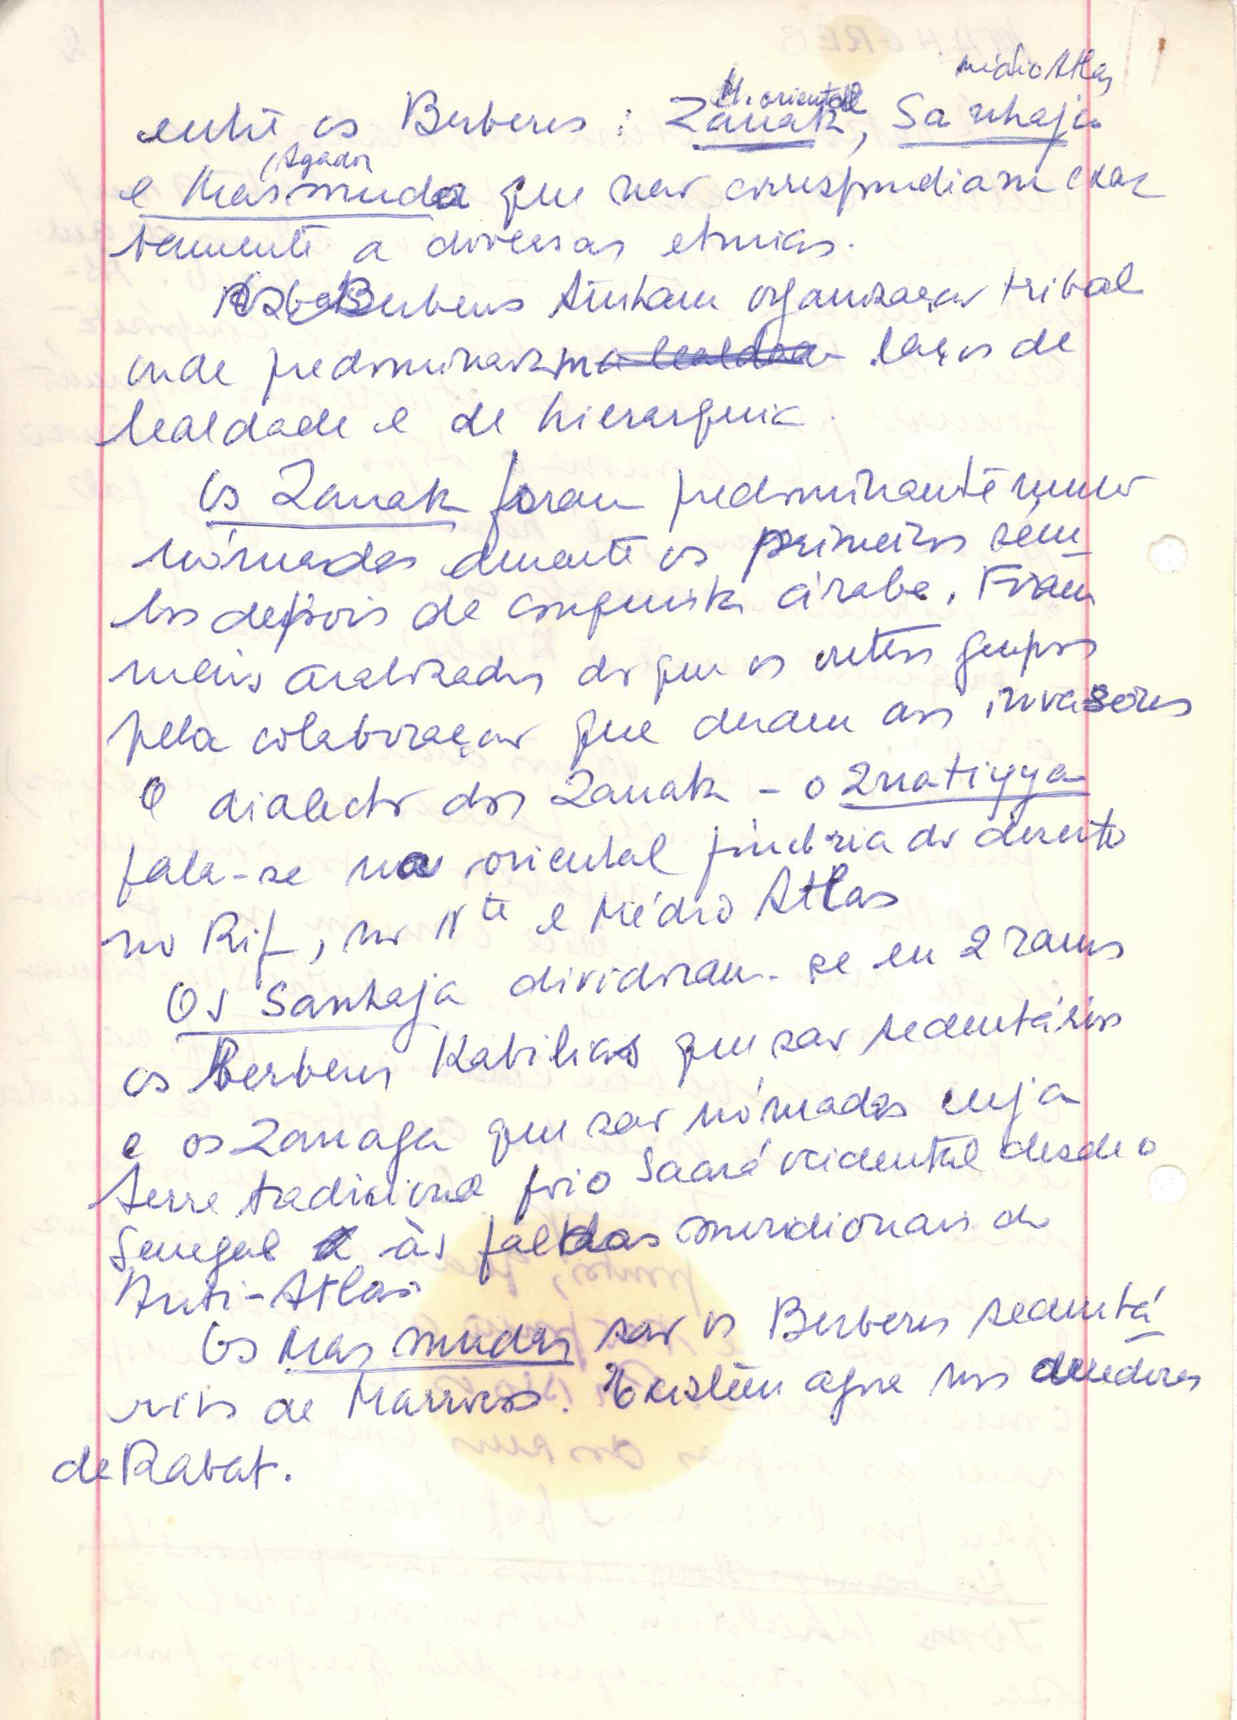 médio Atlas
M. oriental
entre os Berberes: Zanak, Sanhaja
(Agador
e Masmuda que não correspondiam exac
tamente a diversas etnias.
Os Berberes tinham organização tribal
onde predominavam a lealdade laços de
lealdade e de hierarquia.
Os Zanak foram predominantemente
nómadas durante os primeiros sécu
los depois de conquista árabe. Foram
mais arabizados do que os outros grupos
pela colaboração que deram aos invasores
O dialecto dos Zanak - o Znatiyya
fala-se na oriental fímbria do deserto
no Rif, no Nte e Médio Atlas
Os Sanhaja dividiram-se em 2 ramos
os Berberes Kabilias que são sedentários
e os Zanaga que são nómadas cuja
terra tradicional foi o Saará ocidental desde o
Senegal às faldas meridionais do
Anti-Atlas
Os Masmudas são os Berberes sedentá
rios de Marrocos. Existem agora nos arredores
de Rabat.